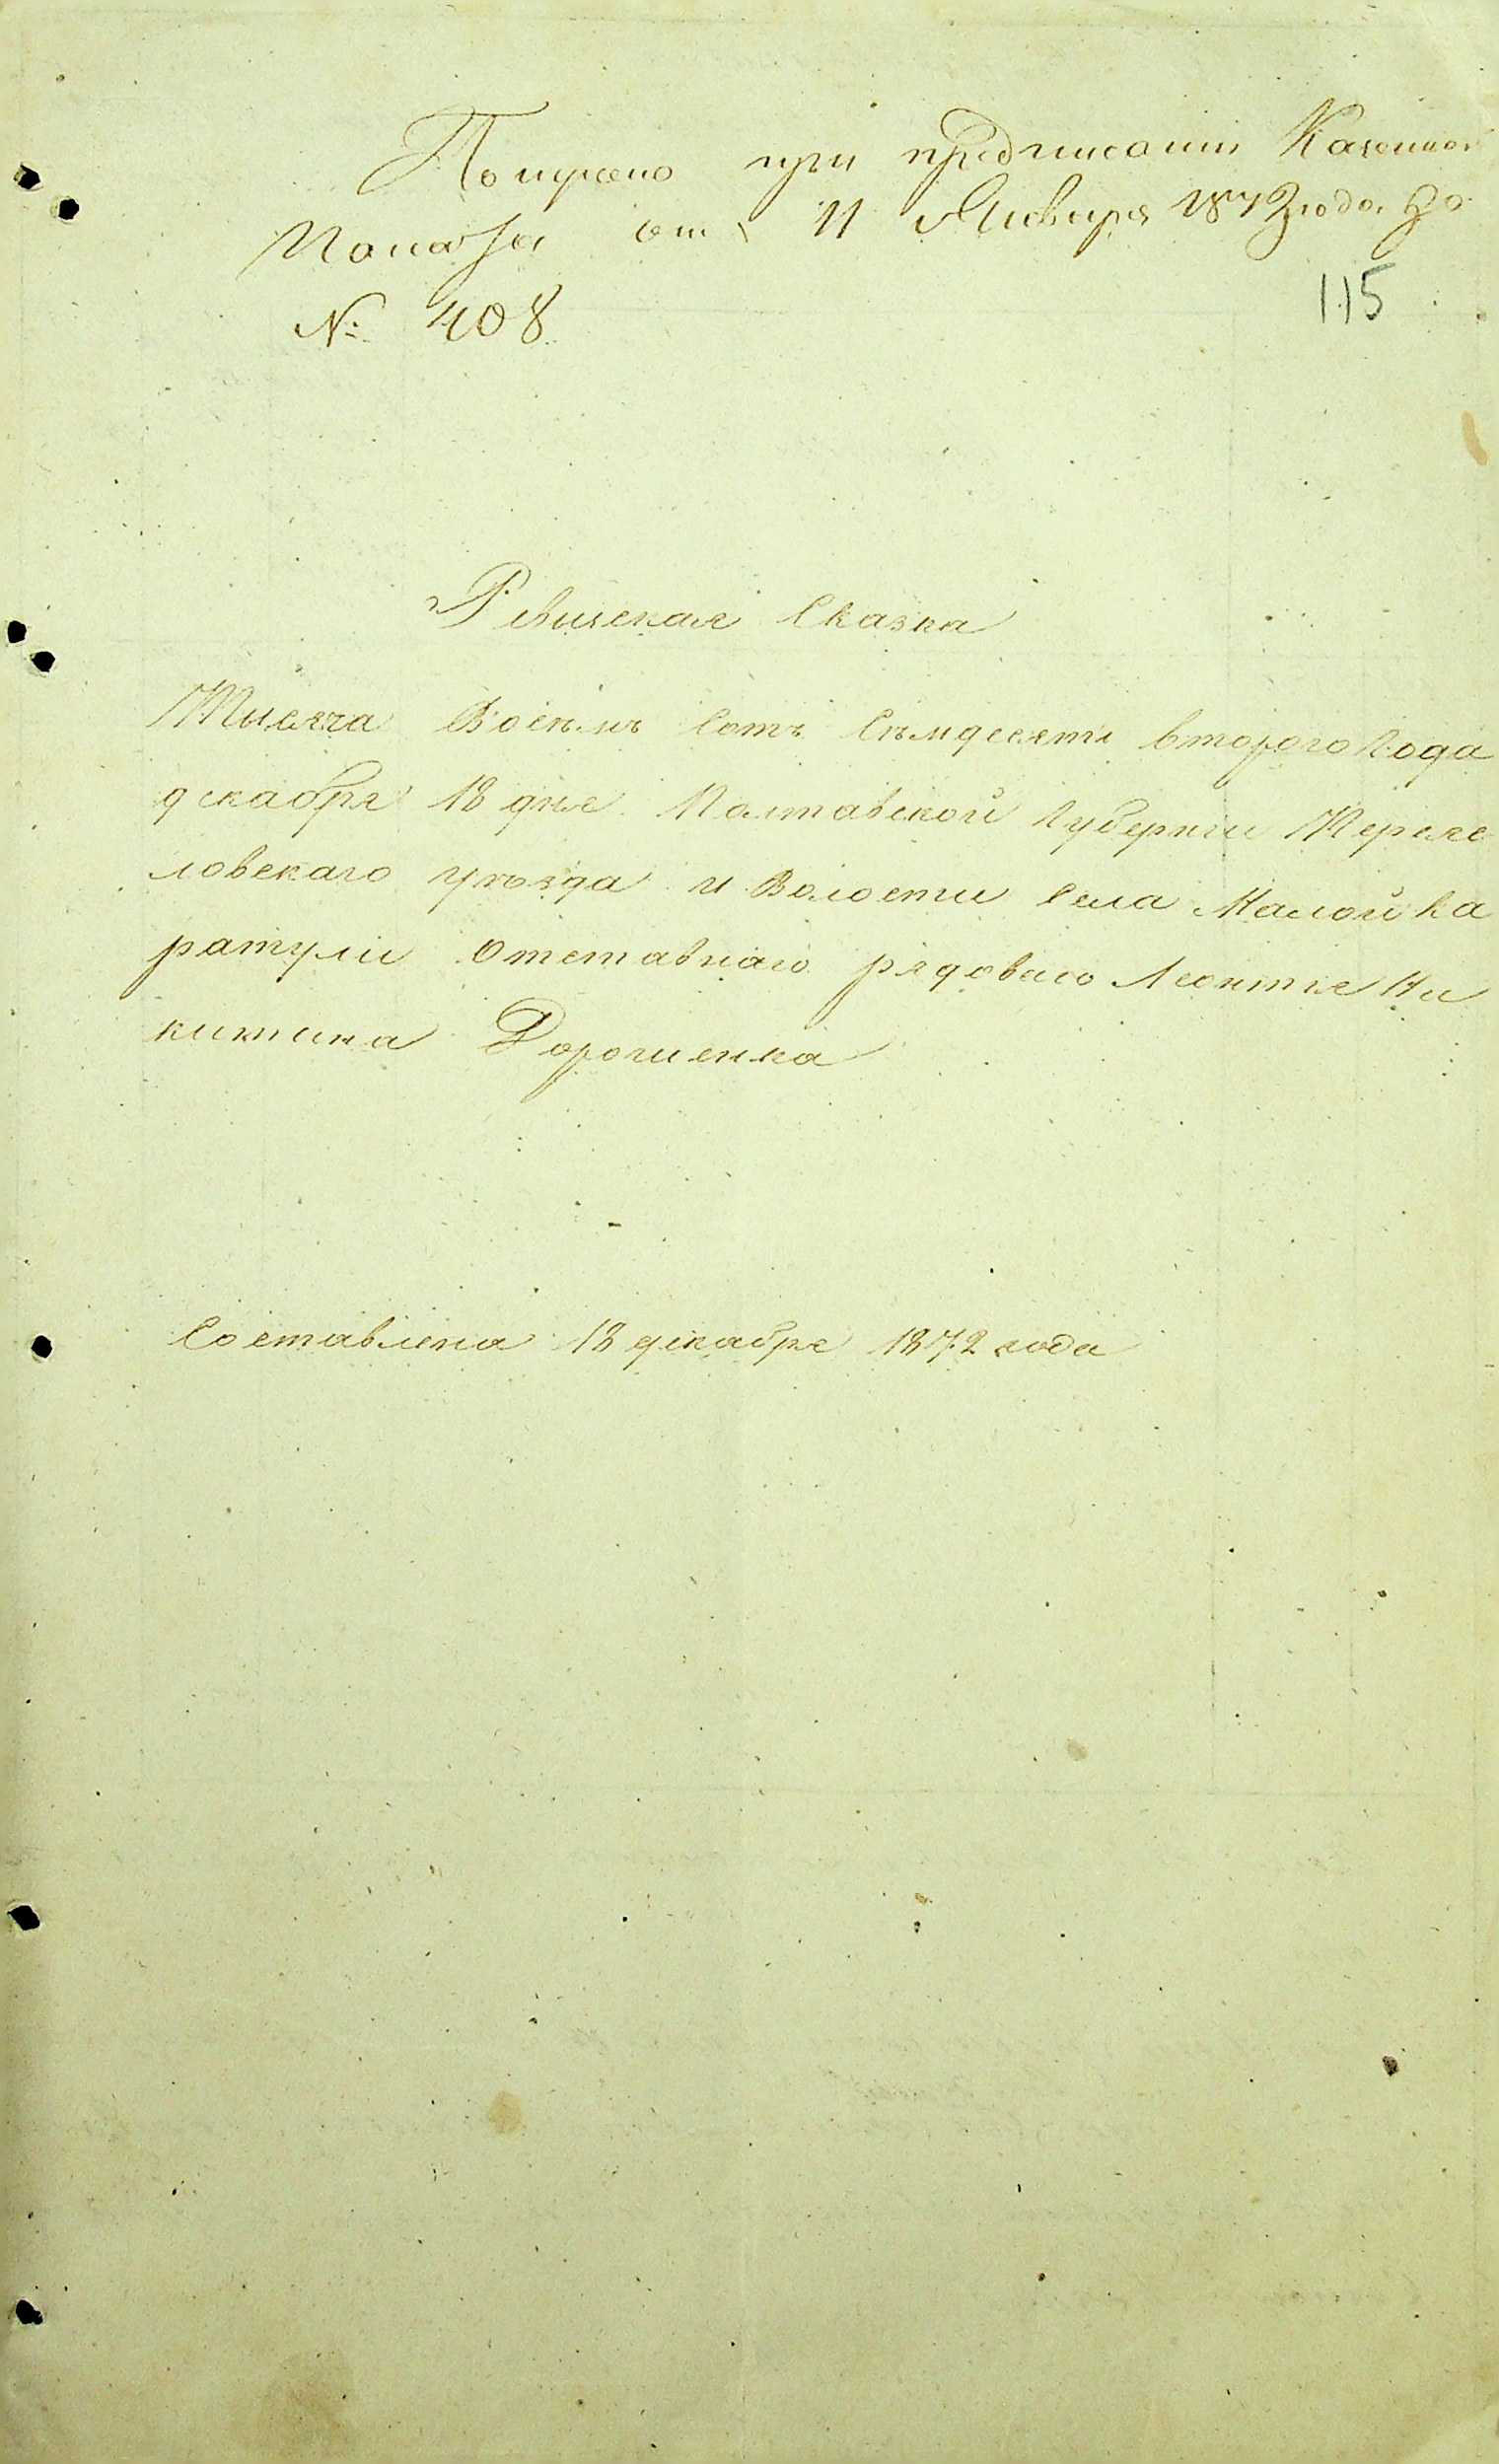 Получено при предписаніи Казенной
Палаты отъ 11 Января 1873 года за
№ 408
115
Ревизская Сказка
Тисяча Восѣмъ Сотъ Сѣмдесятъ второго Года
декабря 18 дня Полтавской Губерніи Переяс
ловскаго уѣзда и Волости Села Малой Ка
ратули Отставнаго рядоваго Леонтія Ни
китина Дорошенка
Составлена 18 декабря 1872 года